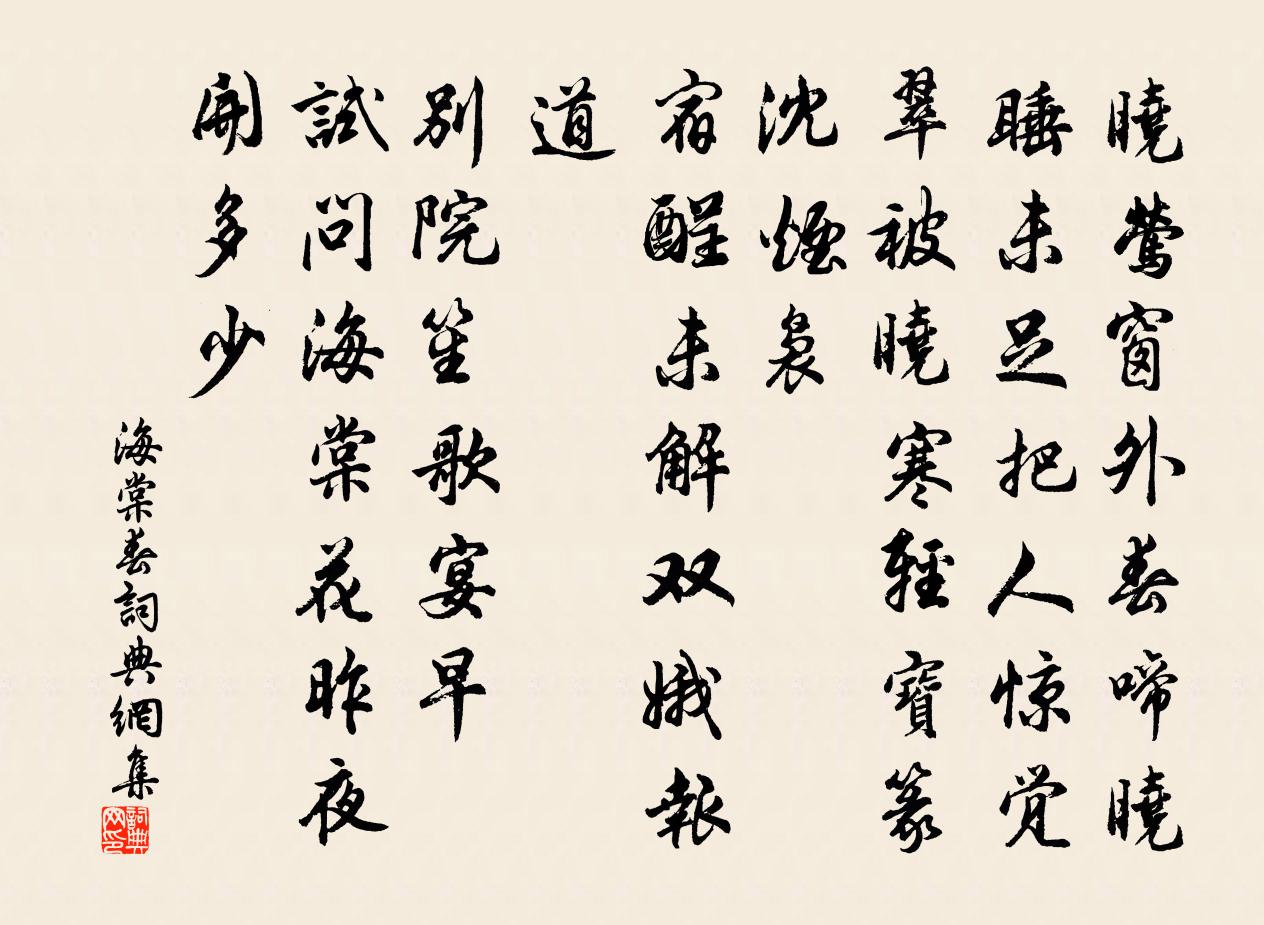 曉鶯窗外春啼曉
睡未足把人惊觉
翠被曉寒輕寶篆
沈煙裊
宿醒未解双娥報
道
別院笙歌宴早
試問海棠花昨夜
開多少
海棠春詞典網集
詞典网印